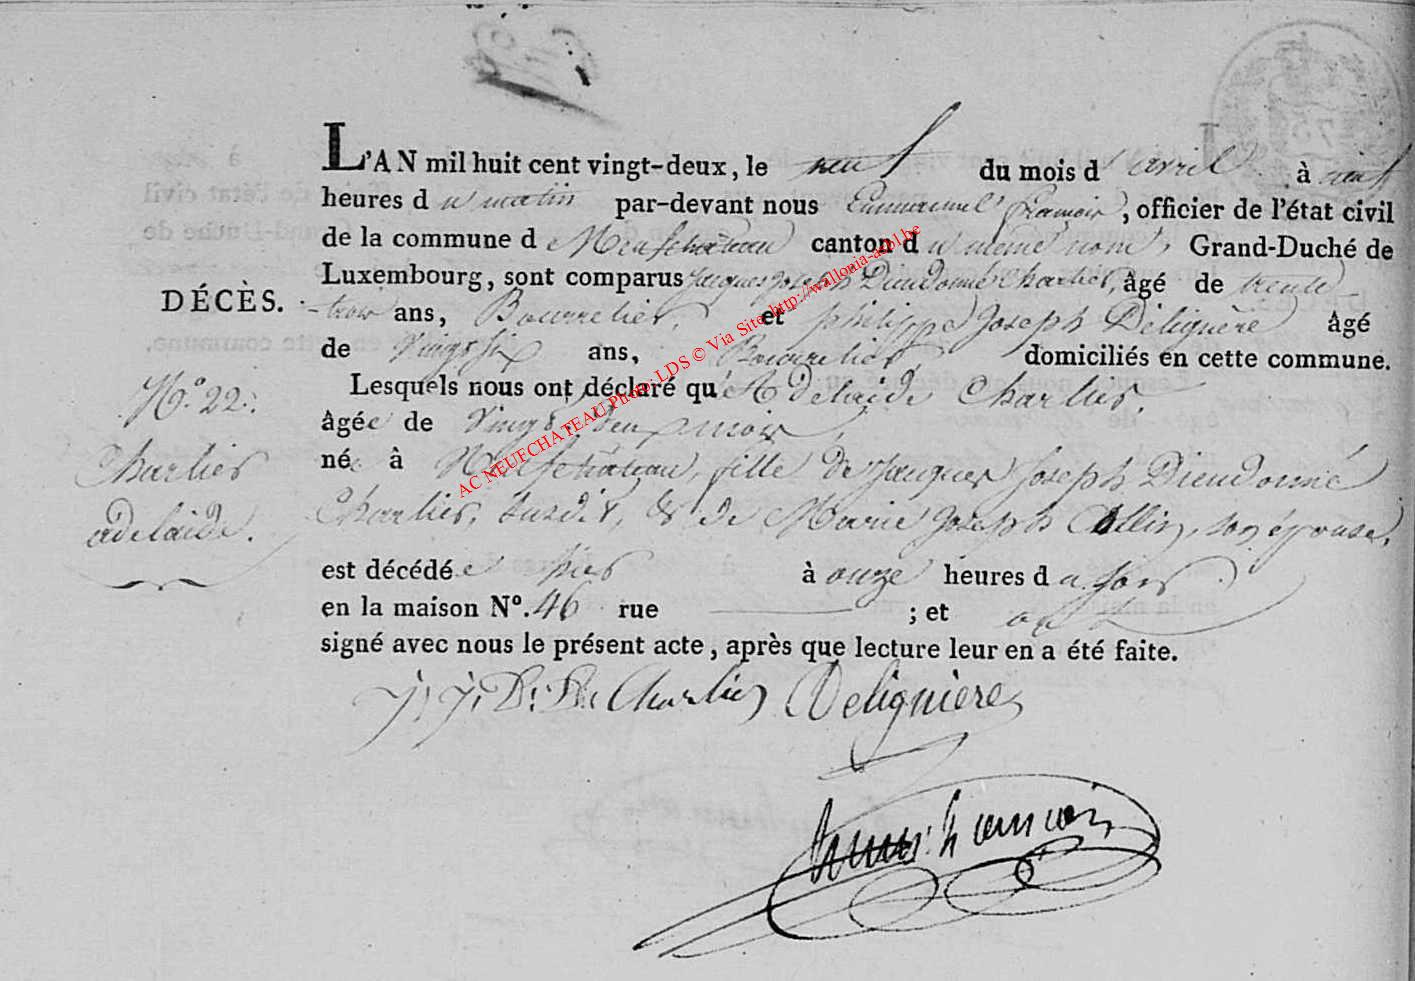 L'AN mil huit cent vingt-deux, le neuf du mois d'avril à neuf
heures du matin par-devant nous Emmanuel, officier de l'état civil
de la commune de Neufchâteau canton du même nom, Grand-Duché de
Luxembourg, sont comparus Jacques Joseph Dieudonné Charlier, âgé de trente
DÉCÈS.
-trois ans, Bourrelier, et philippe Joseph Delignère âgé
de Vingt six ans, Bourrelier domiciliés en cette commune.
N.o 22.
Lesquels nous ont déclaré qu'Adelaide Charlier,
âgée de Vingt deux mois,
Charlier
née à Neufchâteau, fille de Jacques Joseph Dieudonné
adelaide.
Charlier, susdit, & de Marie Joseph Collin, son épouse,
est décédée hier à onze heures du soir
en la maison No. 46 rue ; et ont
signé avec nous le présent acte, après que lecture leur en a été faite.
J. J. D. Charlier Delignière
AC NEUFCHATEAU Photo: LDS © Via Site: http://wallonia-asbl.be